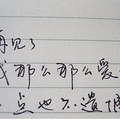 再见了
我那么那么爱
一点也不遗憾